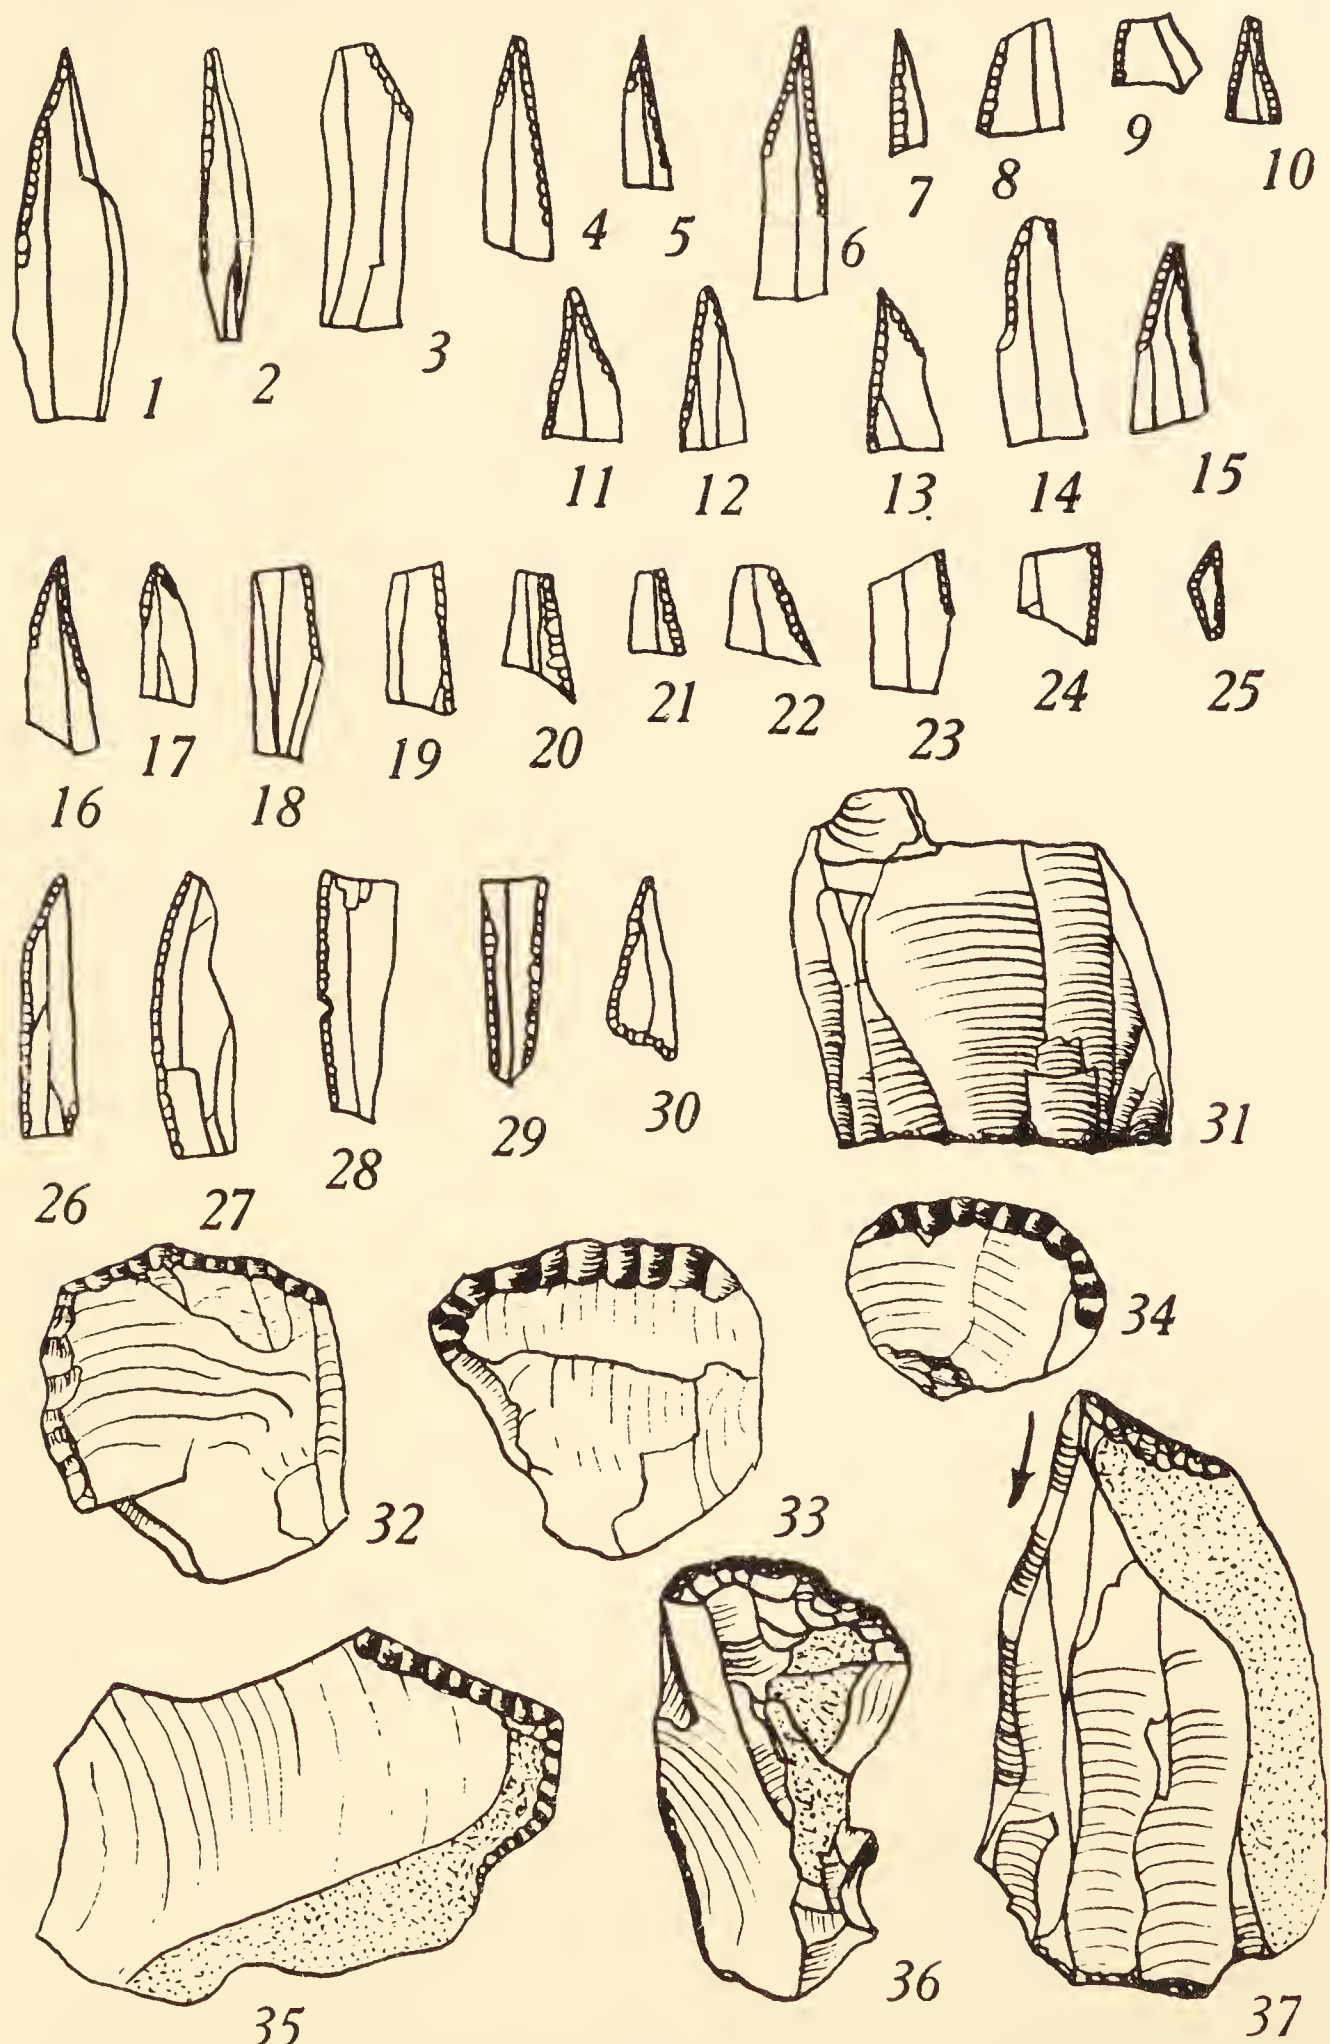 1 2 3 4 5 6 7 8 9 10
11 12 13 14 15
16 17 18 19 20 21 22 23 24 25
26 27 28 29 30 31
32 33 34
35 36 37